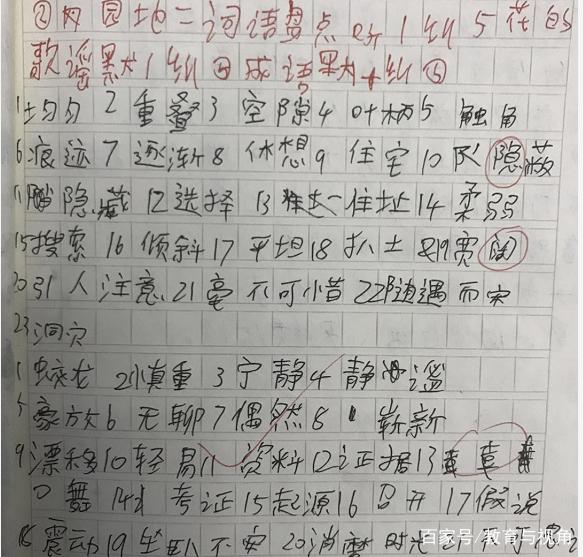 ②网园地二词语盘点听1纠5花的
歌谣累木1纠④成语累木十纠⑤
1均匀2重叠3空隙4叶柄5触角
6痕迹7逐渐8休想9住宅10隐蔽
11隐藏12选择13住址14柔弱
15搜索16倾斜17平坦18扒土19宽阔
20引人注意21毫不可惜22随遇而安
23洞穴
1蛟龙2慎重3宁静4静谧
5豪放6无聊7偶然8崭新
9漂移10轻易11资料12证据13
舞14考证15起源16召开17假说
18震动19坐卧不安20消磨时光
百家号/教育与视角